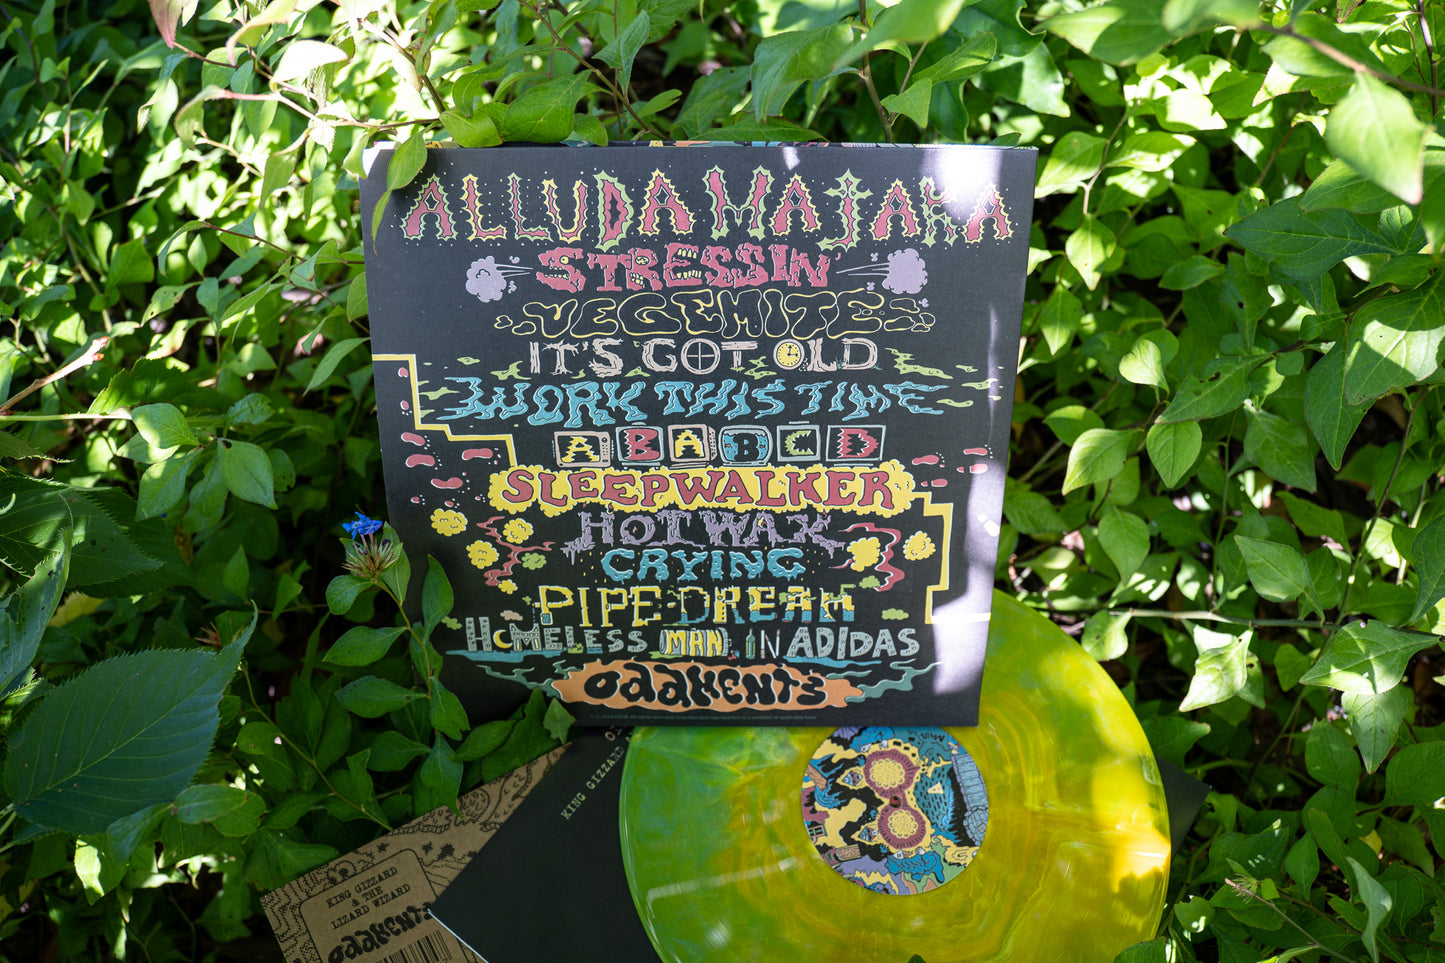 ALLUDA MAJAKA
STRESSIN'
VEGEMITE
IT'S GOT OLD
WORK THIS TIME
ABABCD
SLEEPWALKER
HOT WAX
CRYING
PIPE-DREAM
HOMELESS MAN IN ADIDAS
ODDMENTS
KING GIZZARD
KING GIZZARD
& THE
LIZARD WIZARD
ODDMENTS